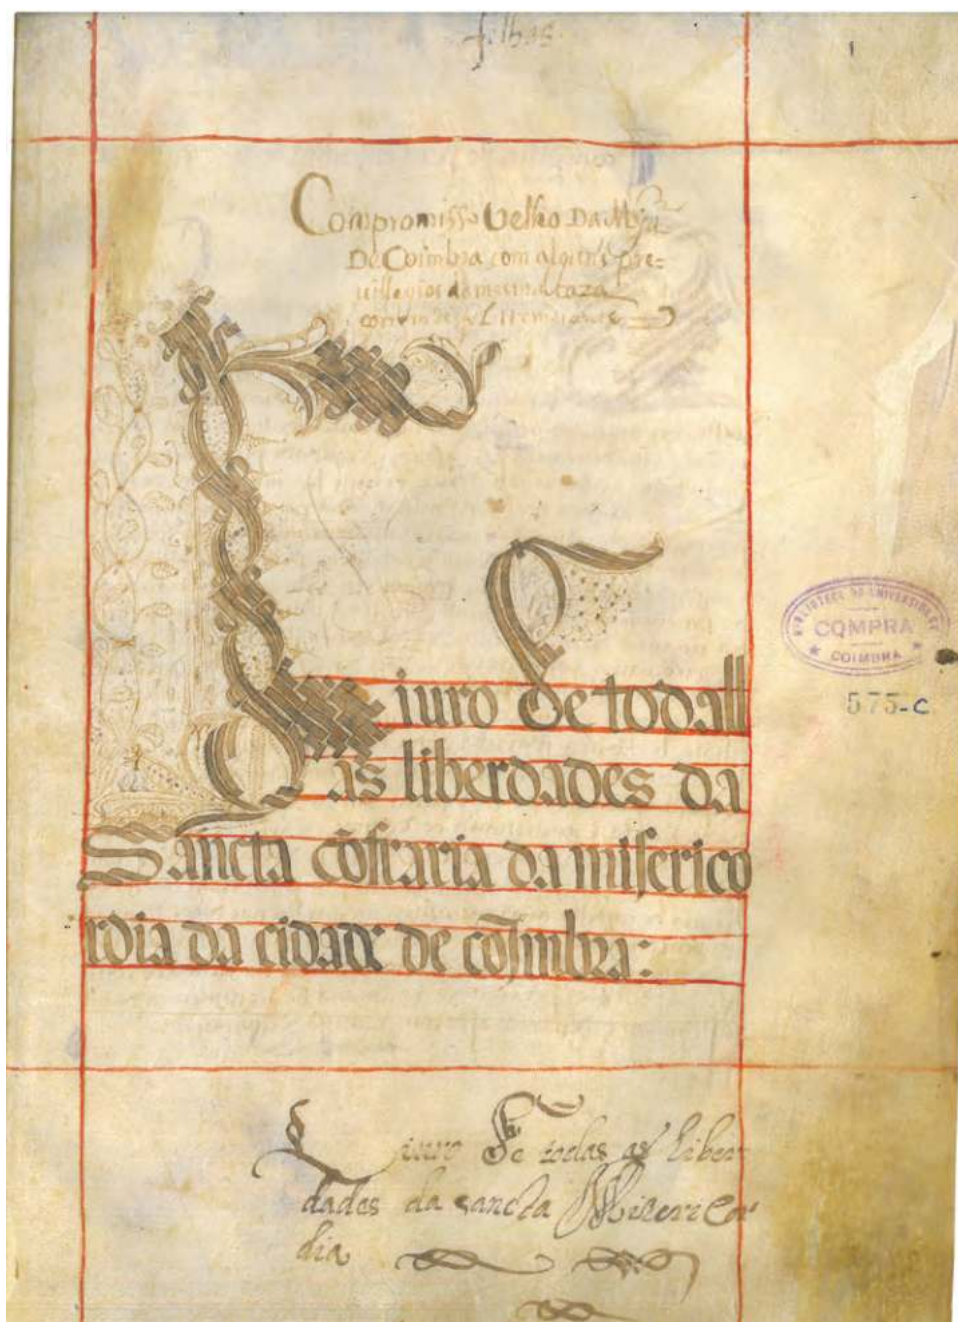 1
Compromisso Velho Da Mỹa
De Coimbra com alguns pre=
uillegios da mesma caza
Liuro de todall
as liberdades da
Sancta cõfraria da miserico
rdia da cidade de coĩmbra:
BIBLIOTECA DA UNIVERSIDADE
COMPRA
★ COIMBRA ★
575-C
Liuro De todas as liber
dades da sancta Misericor
dia